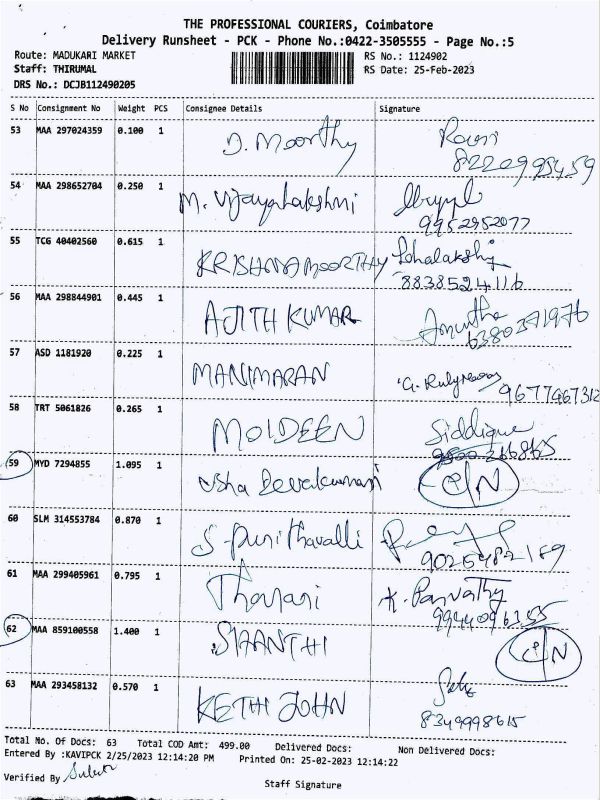 THE PROFESSIONAL COURIERS, Coimbatore
Delivery Runsheet - PCK - Phone No.:0422-3505555 - Page No.:5
Route: MADUKARI MARKET RS No.: 1124902
Staff: THIRUMAL RS Date: 25-Feb-2023
DRS No.: DCJB112490205
S No Consignment No Weight PCS Consignee Details Signature
53 MAA 297024359 0.100 1 D. Moorthy
54 MAA 298652704 0.250 1 M. Vijayalakshmi
9952952077
55 TCG 40402560 0.615 1 KRISHNAMOORTHY
8838524116
56 MAA 298844901 0.445 1 AJITH KUMAR Amutha
6380371976
57 ASD 1181920 0.225 1 MANIMARAN
9677967312
58 TRT 5061826 0.265 1 MOIDEEN Siddique
59 MYD 7294855 1.095 1 Usha Devakumari
60 SLM 314553784 0.870 1 S. Punithavalli
9025482189
61 MAA 299405961 0.795 1 K. Parvathy
62 MAA 859100558 1.400 1 SHANTHI
63 MAA 293458132 0.570 1 KETHI JOHN
8349998615
Total No. Of Docs: 63 Total COD Amt: 499.00 Delivered Docs: Non Delivered Docs:
Entered By :KAVIPCK 2/25/2023 12:14:20 PM Printed On: 25-02-2023 12:14:22
Verified By
Staff Signature